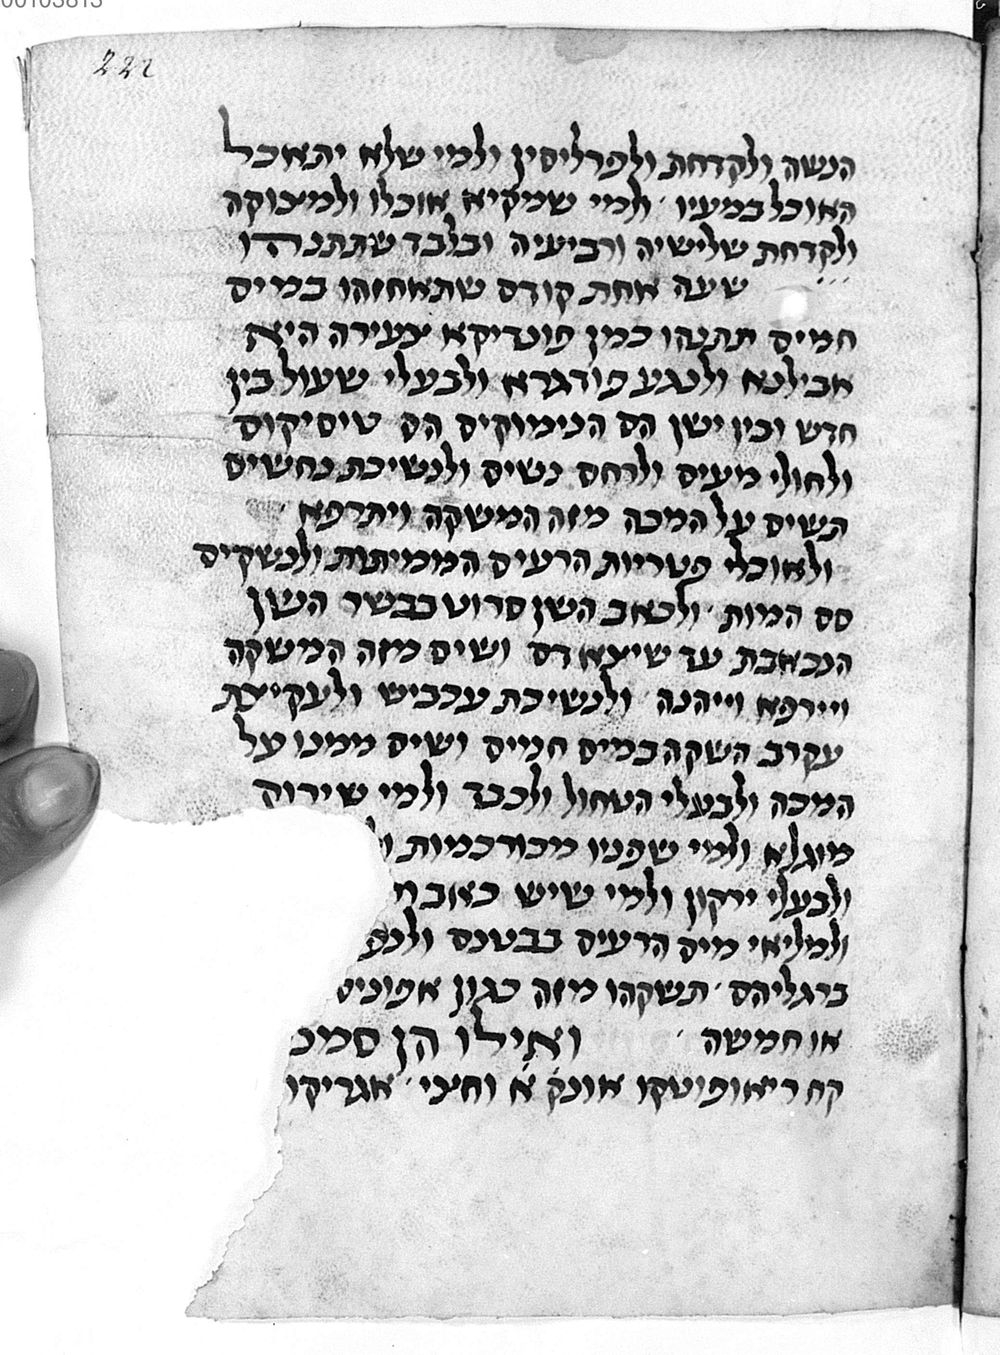 00103813
222
הנשה ולקדחת ולפרליסין ולמי שלא יתאכל
האוכל במעיו ׳ ולמי שמקיא אוכלו ולמיצוקה
ולקדחת שלישיה ורביעיה ובלבד שתתנהו
שעה אחת קודם שתאחזהו במים
חמים תתנהו כמן פונדיקא צעירה היא
אבילנא ולנגע פודגרא ולבעלי שעול בין
חדש ובין ישן הם הנימוקים הם טיסיקום
ולחולי מעים ולרחם נשים ולנשיכת נחשים
תשים על המכה מזה המשקה ויתרפא ׳
ולאוכלי פטריות הרעים הממיתות ולנשקים
סם המות ׳ ולכאב השן סרוט בבשר השן
הנכאבת עד שיצא דם ושים מזה המשקה
ויירפא וייהנה ׳ ולנשיכת עכביש ולעקיצת
עקרב השקה במים חמים ושים ממנו על
המכה ולבעלי הטחול ולכבד ולמי שירוק
מוגלא ולמי שפניו מכורכמות
ולבעלי ירקון ולמי שיש כאב
ולמליאי מים הרעים בבטנם
ברגליהם ׳ תשקהו מזה כגון
או חמשה ׳ ואילו הן סמ
קח ריאופונטקו אונק׳ א׳ וחצי ׳ אגריקו